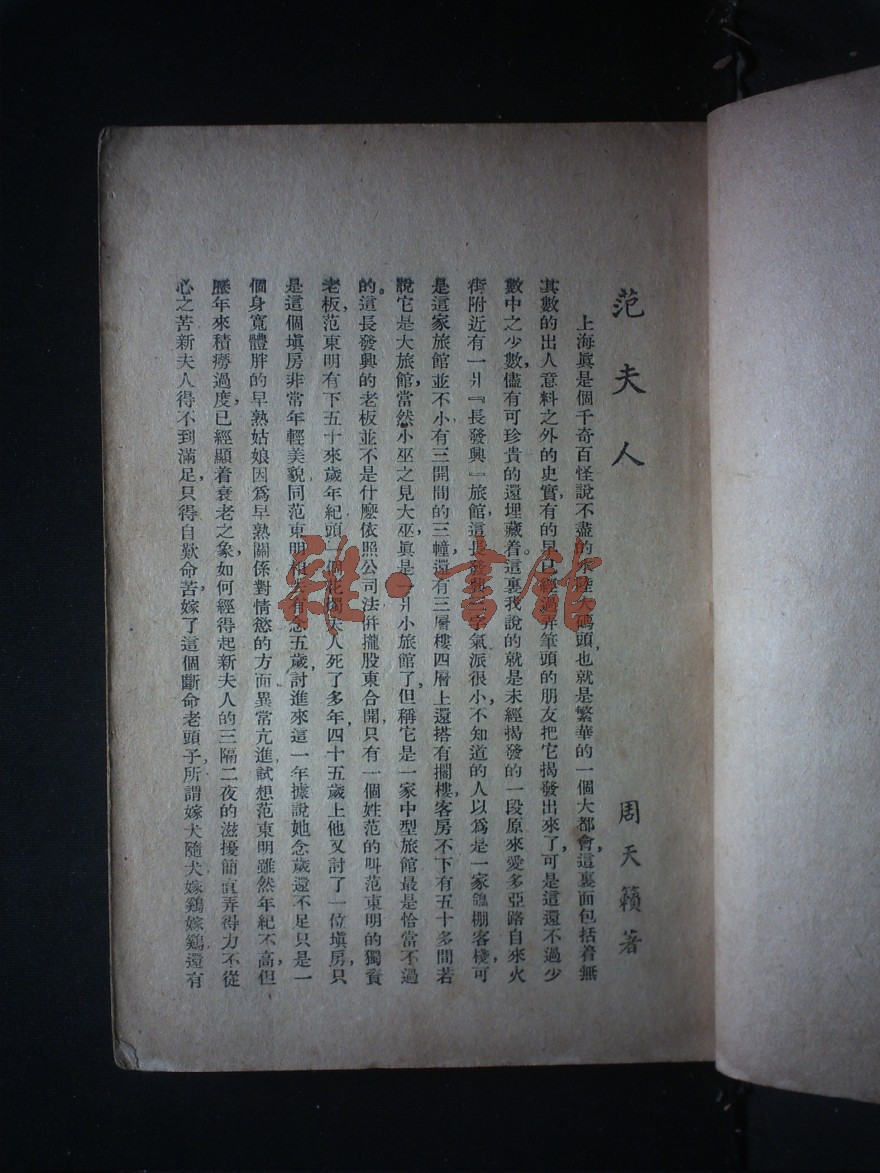 范夫人
周天籟著
上海眞是個千奇百怪說不盡的水陸大碼頭，也就是繁華的一個大都會，這裏面包括着無
其數的出人意料之外的史實，有的早已經過弄筆頭的朋友把它揭發出來了，可是這還不過少
數中之少數，儘有可珍貴的還埋藏着。這裏我說的就是未經揭發的一段原來愛多亞路自來火
街附近有一爿『長發興』旅館，這長發興三字氣派很小，不知道的人以爲是一家棚客棧，可
是這家旅館並不小有三開間的三幢，還有三層樓四層上還搭有擱樓客房不下有五十多間若
說它是大旅館，當然小巫之見大巫，眞是一爿小旅館了，但稱它是一家中型旅館最是恰當不過
的。這長發興的老板並不是什麼依照公司法併攏股東合開，只有一個姓范的叫范東明的獨資
老板，范東明有下五十來歲年紀頭一個花燭夫人死了多年，四十五歲上他又討了一位塡房，只
是這個塡房非常年輕美貌，同范東明相去有念五歲，討進來這一年據說她念歲還不足只是一
個身寬體胖的早熟姑娘因爲早熟關係對情慾的方面異常亢進，試想范東明雖然年紀不高，但
歷年來積癆過度，已經顯着衰老之象，如何經得起新夫人的三隔二夜的滋擾簡直弄得力不從
心之苦新夫人得不到滿足，只得自歎命苦，嫁了這個斷命老頭子，所謂嫁犬隨犬嫁鷄嫁鷄還有
雜·書館